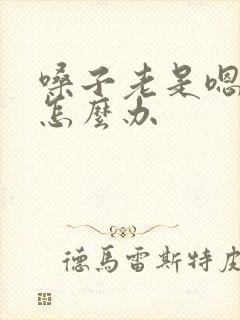 嗓子老是嗯
怎麼办
德馬雷斯特皮